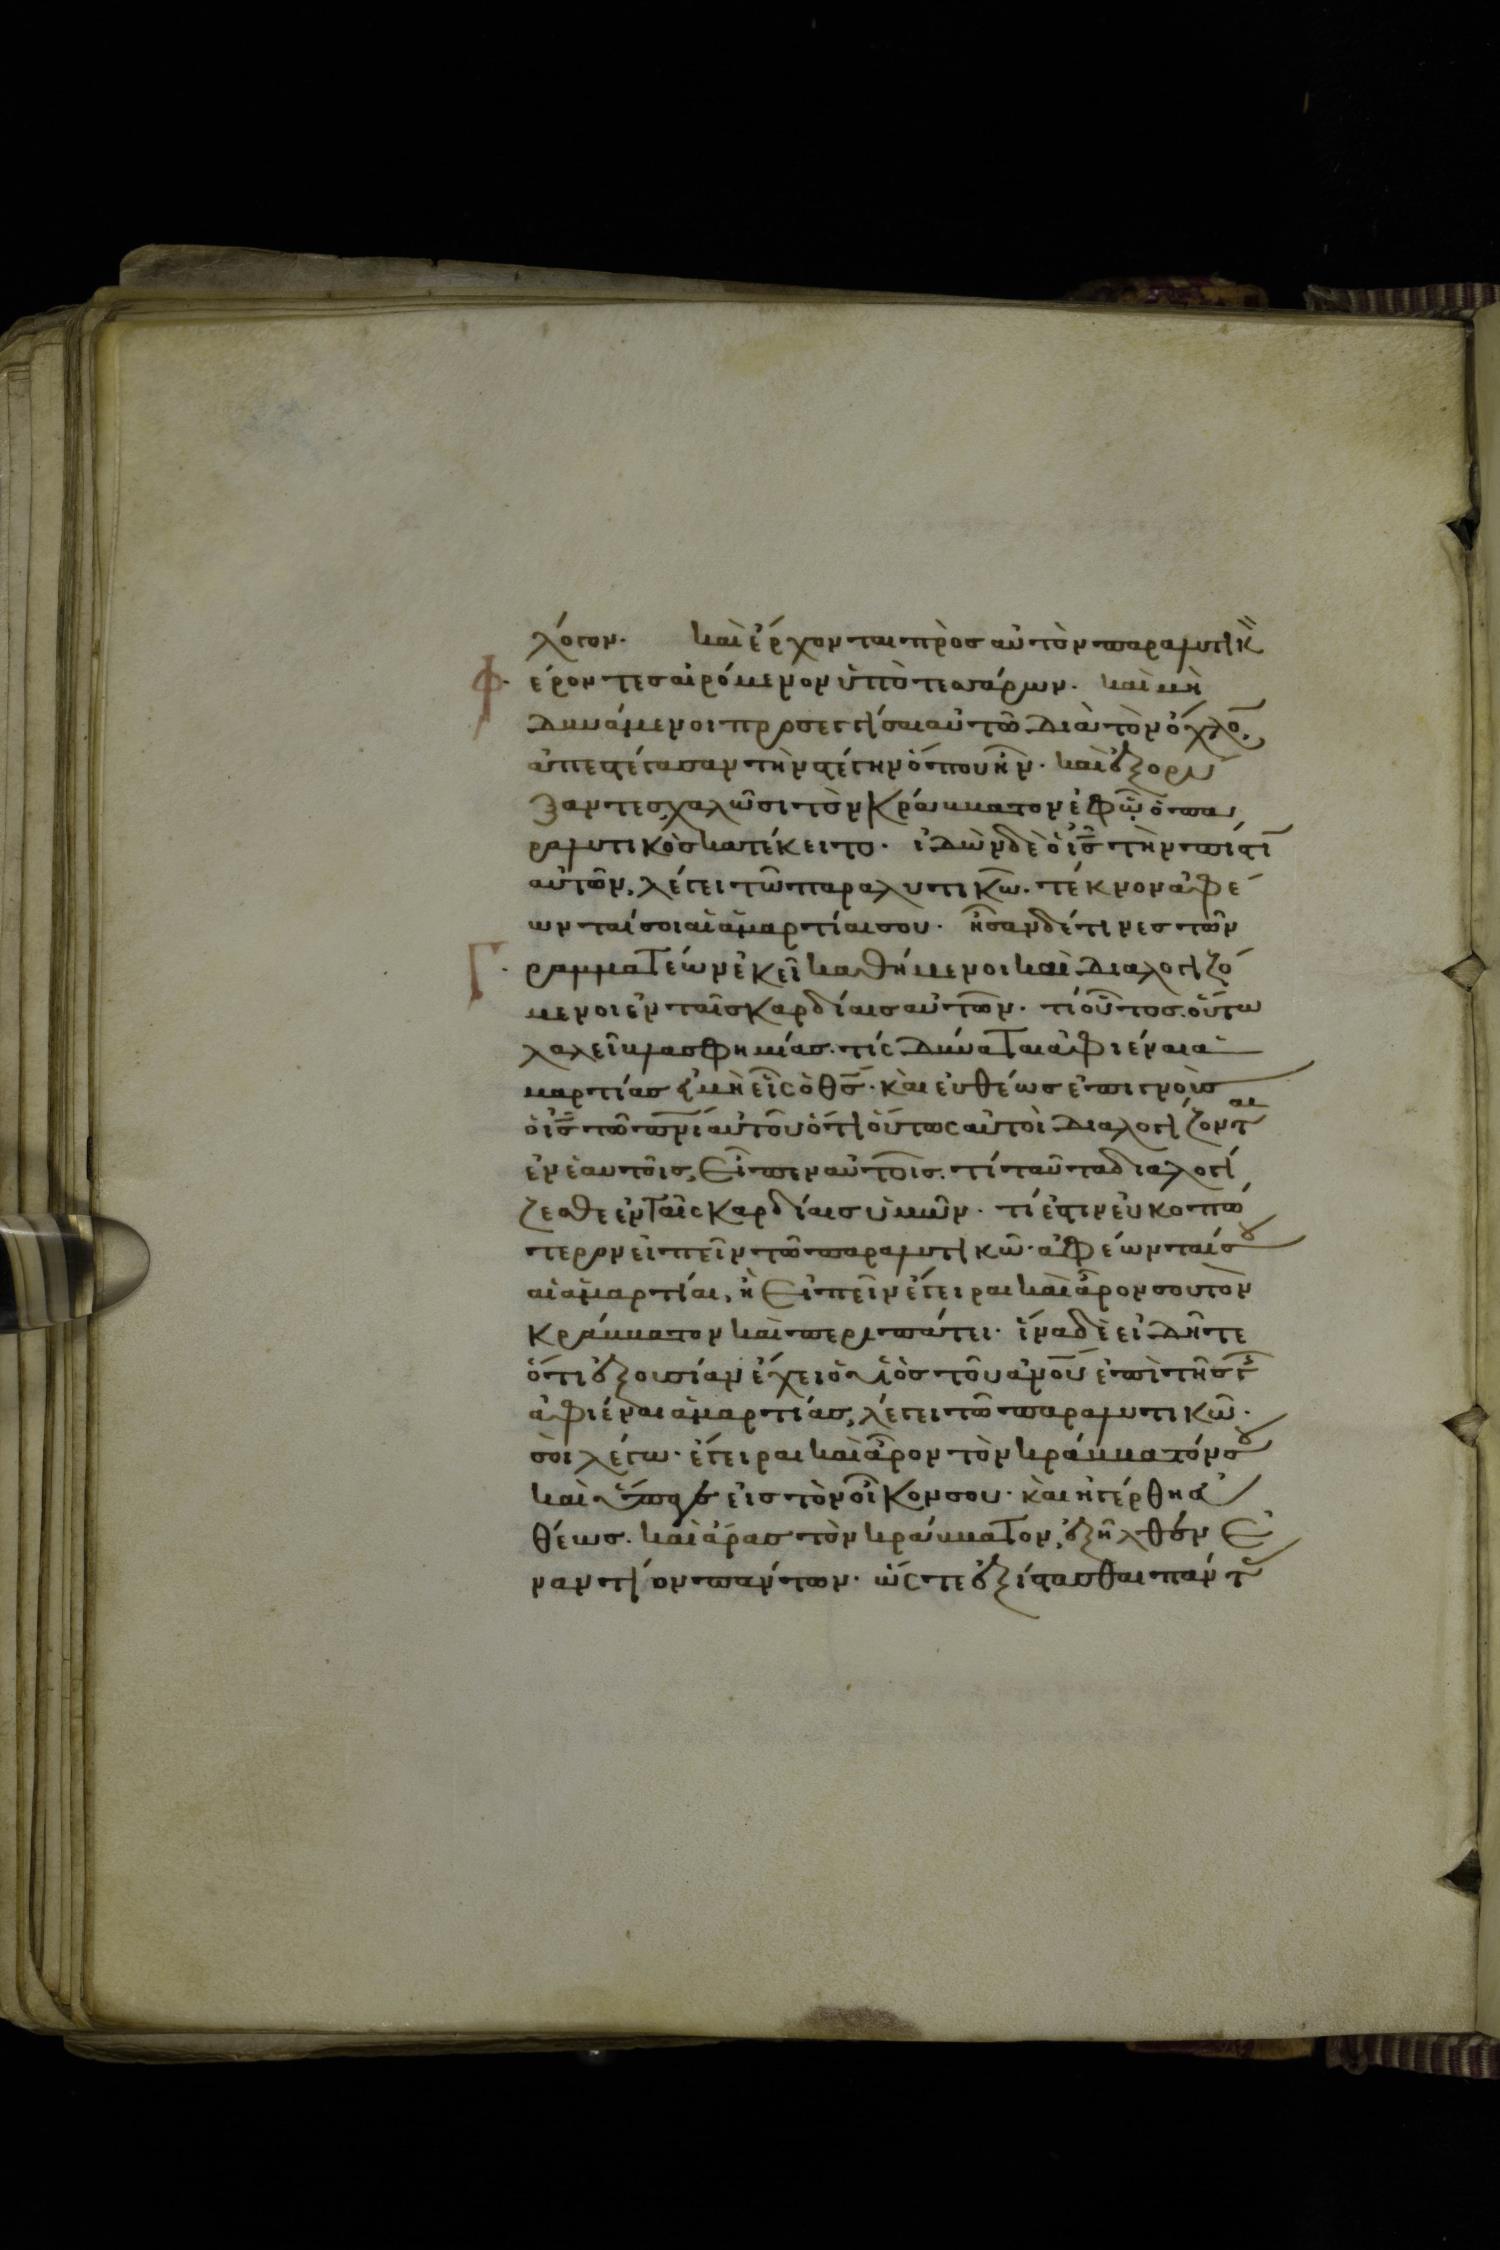 λόγον. και έρχονται προς αυτόν παραλυτικ
Φ. έροντες αιρόμενον ὑπὸ τεσσάρων. και μὴ
δυνάμενοι προσεγγίσαι αυτῶ διὰ τὸν όχλο,
ἀπεστέγασαν τὴν στέγην ὅπου ἦν. και ἐξορύ
ξαντες, χαλῶσι τὸν κράββατον ἐφ ᾧ ὁ πα
ραλυτικὸς κατέκειτο. ἰδὼν δὲ ὁ ις̅ τὴν πίστι
αὐτῶν, λέγει τῶ παραλυτικῶ. τέκνον ἀφέ
ωνταί σοι αἱ ἁμαρτίαι σου. ἦσαν δέ τινες τῶν
Γ. ραμματέων ἐκεῖ καθήμενοι και διαλογιζό
μενοι ἐν ταῖς καρδίαις αὐτῶν. τί οὗτος οὕτω
λαλεῖ βλασφημίας. τίς δύναται ἀφιέναι ἁ
μαρτίας εἰ μὴ εἷς ὁ θς̅. και εὐθέως ἐπιγνοὺς
ὁ ις̅ τῶ πν̅ι αὐτοῦ ὅτι οὕτως αὐτοὶ διαλογίζονται
ἐν ἑαυτοῖς, εἶπεν αὐτοῖς. τί ταῦτα διαλογί
ζεσθε ἐν ταῖς καρδίαις ὑμῶν. τί ἐστιν εὐκοπώ
τερον εἰπεῖν τῶ παραλυτικῶ. ἀφέωνταί σου
αἱ ἁμαρτίαι, ἢ εἰπεῖν ἔγειραι και ἆρον σου τὸν
κράββατον και περιπάτει. ἵνα δὲ εἰδῆτε
ὅτι ἐξουσίαν έχει ὁ υἱὸς τοῦ ανου̅ ἐπὶ τῆς γῆς
ἀφιέναι ἁμαρτίας, λέγει τῶ παραλυτικῶ.
σοὶ λέγω. ἔγειραι και ἆρον τὸν κράββατόν σου
και ὕπαγε εἰς τὸν οἶκον σου. και ἠγέρθη εὐ
θέως. και άρας τὸν κράββατον, ἐξῆλθεν ἐ
ναντίον πάντων. ὥστε ἐξίστασθαι πάντας